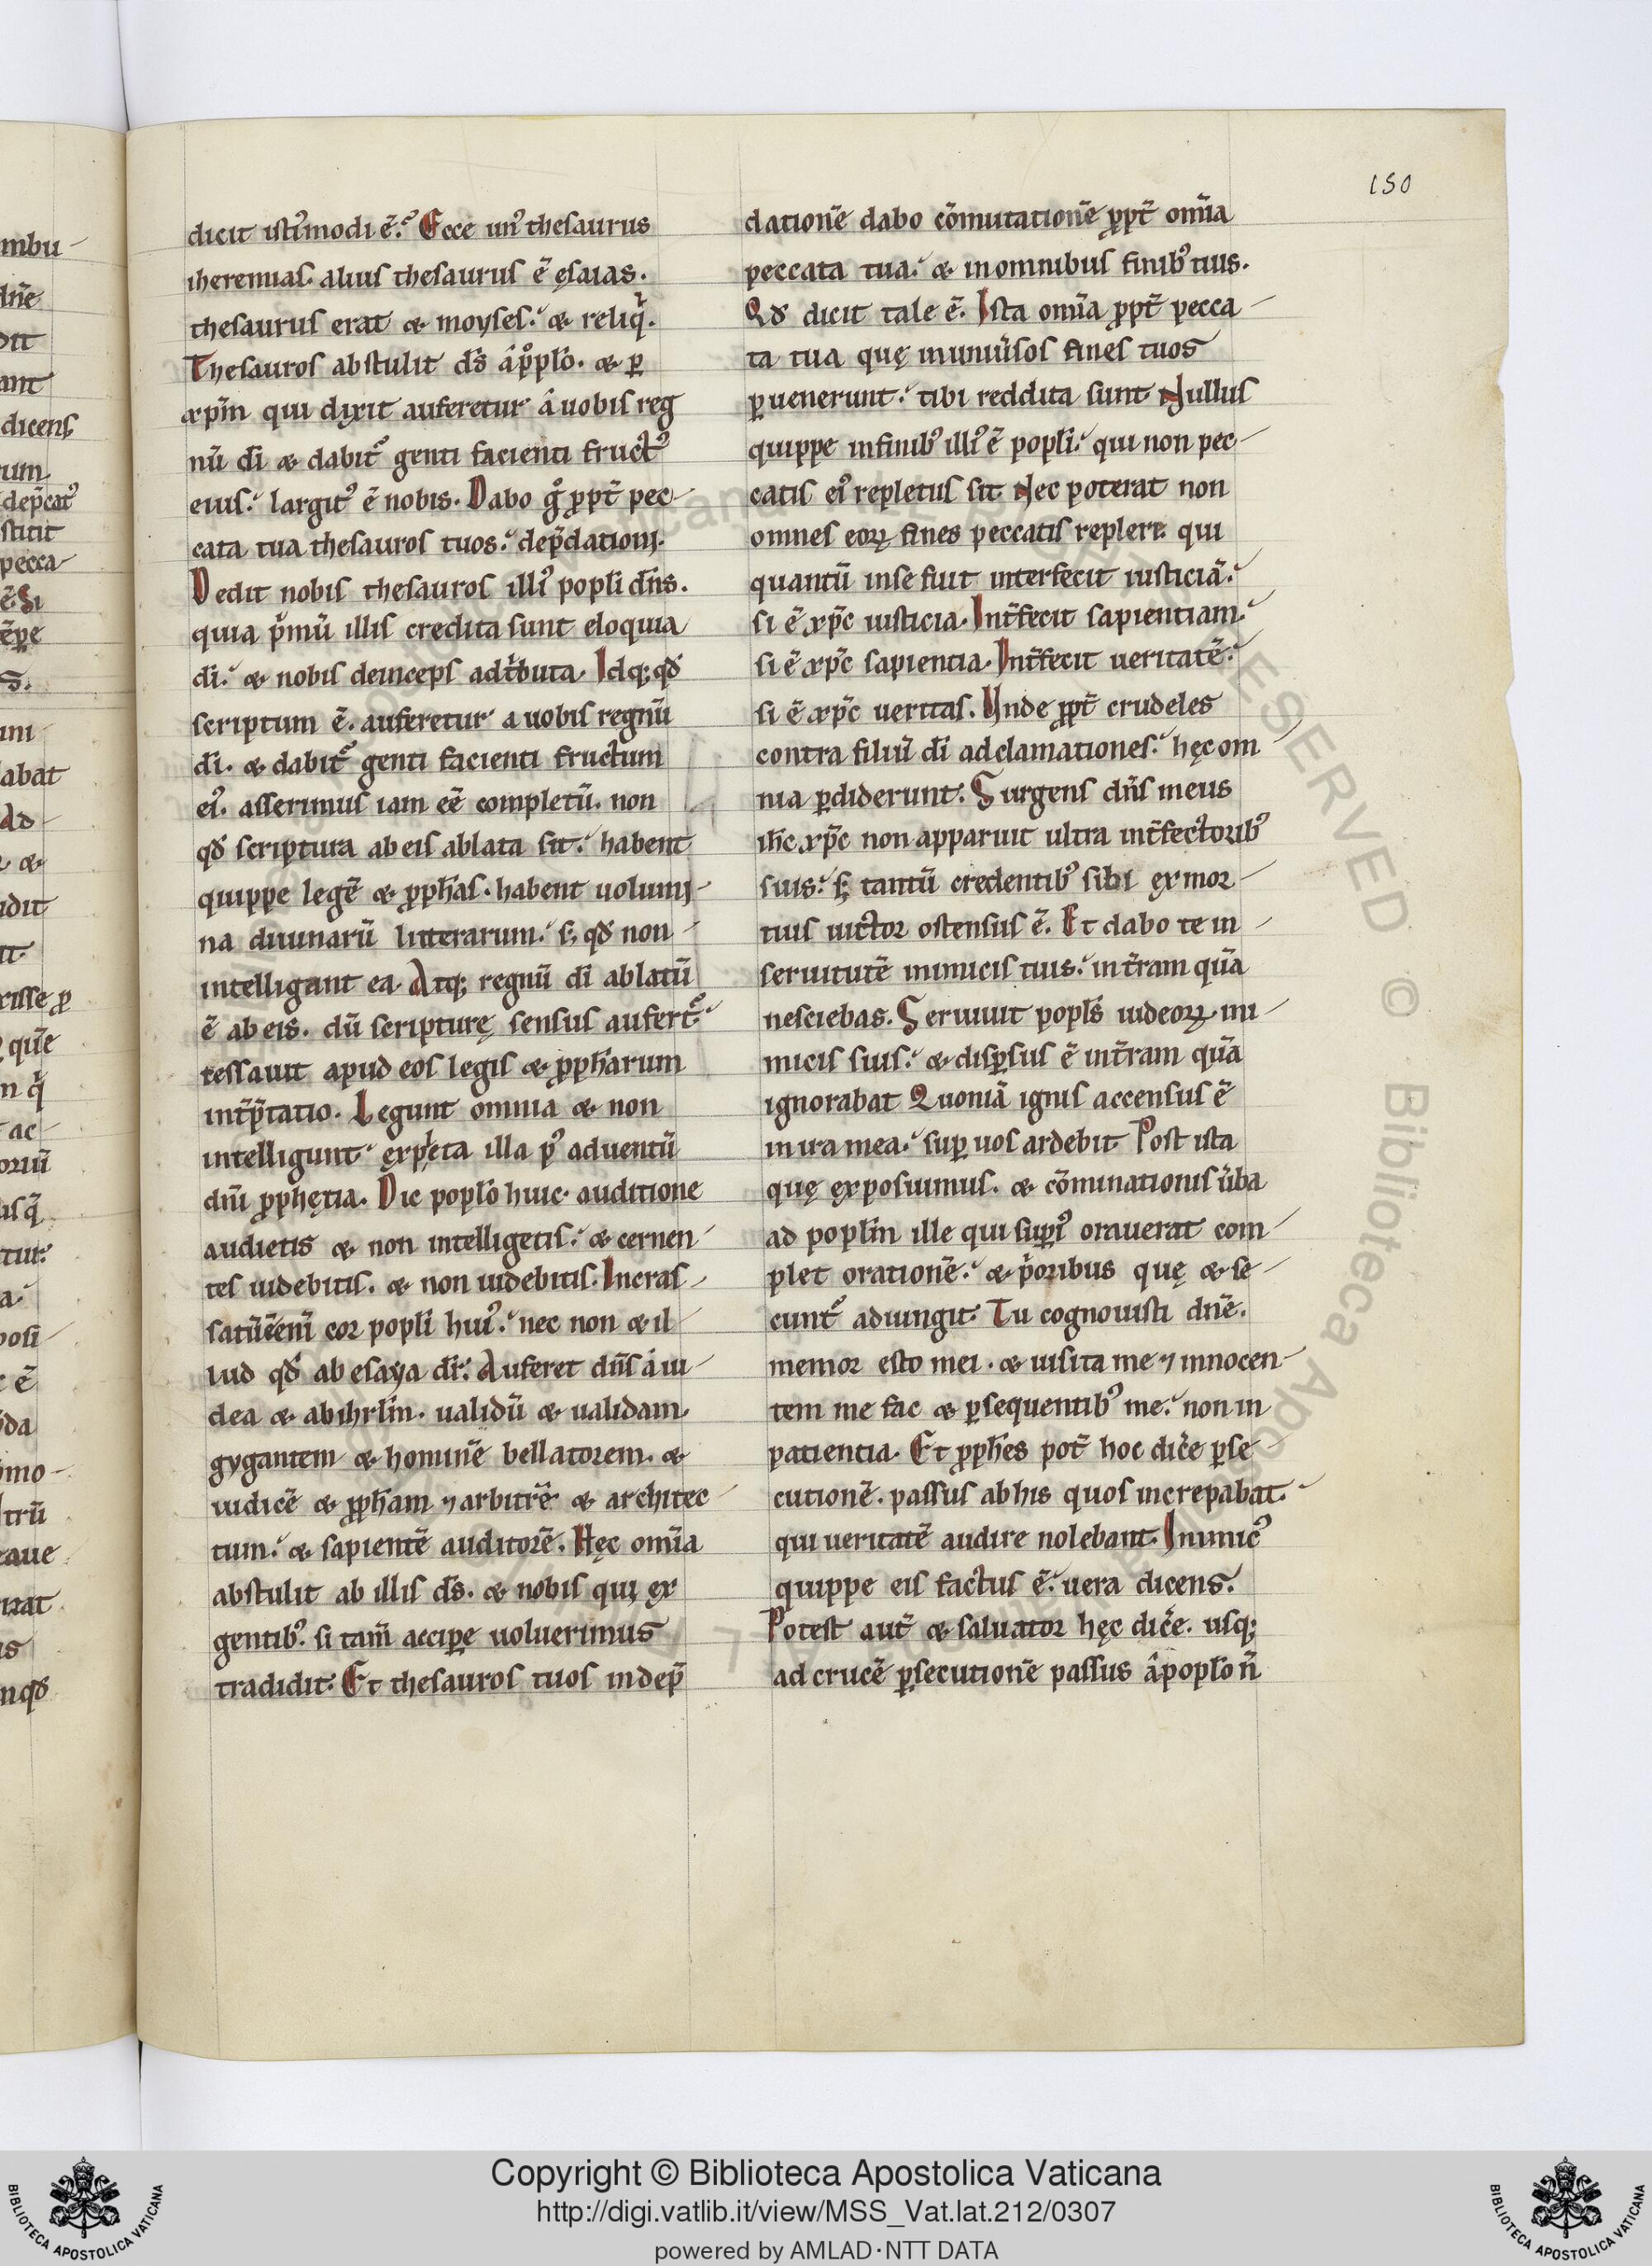 150
dicit istiꝰmodi ē. Ecce unꝰ thesaurus
iheremias. alius thesaurus ē ęsaias.
thesaurus erat & moyses. & reliq.
Thesauros abstulit ds̄ a pp̄lo. & ꝑ
xp̄m qui dixit auferetur á uobis reg
nū dī & dabit᷒ genti facienti fructꝰ
eius. largitꝰ ē nobis. Dabo gͦ ꝓpt̄ pec-
cata tua thesauros tuos. dep̄dationi.
Dedit nobis thesauros illiꝰ popłi dn̄s.
quia pͥmū illis credita sunt eloquia
dī. & nobis deinceps adtͥbuta. Idq; qđ
scriptum ē. auferetur a uobis regnū
dī. & dabit᷒ genti facienti fructum
eiꝰ. asserimus iam eē completū. non
qđ scriptura ab eis ablata sit. habent
quippe legē & ꝓph̄as. habent uolumi-
na diuinarū litterarum. s; qđ non-
intelligant ea. Atq; regnū dī ablatū
ē ab eis. dū scripturę sensus aufert᷒.
cessauit apud eos legis & ꝓph̄arum
int̄p̄tatio. Legunt omnia & non
intelligunt expleta illa pꝰ aduentū
dn̄i ꝓphętia. Dic popło huic. auditione
audietis & non intelligetis. & cernen-
tes uidebitis. & non uidebitis. Incras-
satū ē eni᷒ cor popłi huiꝰ. nec non & il-
lud qđ ab esaya dr̄. Auferet dn̄s á iu-
dea & ab ihrłm. ualidū & ualidam.
gygantem & hominē bellatorem. &
iudicē & ꝓph̄am ⁊ arbitrē & architec-
tum. & sapientē auditorē. Hęc om̄ia
abstulit ab illis ds̄. & nobis qui ex
gentibꝰ. si tam̄ acciꝑe uoluerimus
tradidit. Et thesauros tuos in dep̄
dationē dabo cōmutationē ꝓpt̄ om̄ia
peccata tua. & in omnibus finibꝰ tuis.
Qđ dicit tale ē. Ista om̄ia ꝓpt̄ pecca-
ta tua quę in uniūsos fines tuos
ꝑuenerunt. tibi reddita sunt. Nullus
quippe in finibꝰ illiꝰ ē popłi. qui non pec-
catis eiꝰ repletus sit. Nec poterat non
omnes eoꝝ fines peccatis replere qui
quantū in se fuit interfecit iusticiā.
si ē xp̄c iusticia. Int̄fecit sapientiam.
si ē xp̄c sapientia. Int̄fecit ueritatē.
si ē xp̄c ueritas. Unde ꝓpt̄ crudeles
contra filiū dī adclamationes. hęc om
nia ꝑdiderunt. Surgens dn̄s meus
ih̄c xp̄c non apparuit ultra int̄fectoribꝰ
suis. s; tantū credentibꝰ sibi ex mor-
tuis uictor ostensus ē. Et dabo te in-
seruitutē inimicis tuis. in t̄ram quā
nesciebas. Seruiuit popłs iudeoꝝ. ini-
micis suis. & disꝑsus ē in t̄ram quā
ignorabat Quoniā ignis accensus ē
in ira mea. suꝑ uos ardebit Post ista
quę exposuimus. & cōminationis ūba
ad popłm ille qui suꝑiꝰ orauerat com-
plet orationē. & pͥoribus quę & se-
cunt᷒ adiungit. Tu cognouisti dn̄e.
memor esto mei. & uisita me ⁊ innocen-
tem me fac & ꝑsequentibꝰ me. non in
patientia. Et ꝓph̄es pot̄ hoc dic̄e ꝑse-
cutionē. passus ab his quos increpabat.
qui ueritatē audire nolebant. Inimicꝰ
quippe eis factus ē. uera dicens.
Potest aut̄ & saluator hęc dic̄e. usq;
ad crucē ꝑsecutionē passus á popło n̄
Copyright © Biblioteca Apostolica Vaticana
http://digi.vatlib.it/view/MSS_Vat.lat.212/0307
powered by AMLAD·NTT DATA
BIBLIOTECA APOSTOLICA VATICANA
BIBLIOTECA APOSTOLICA VATICANA